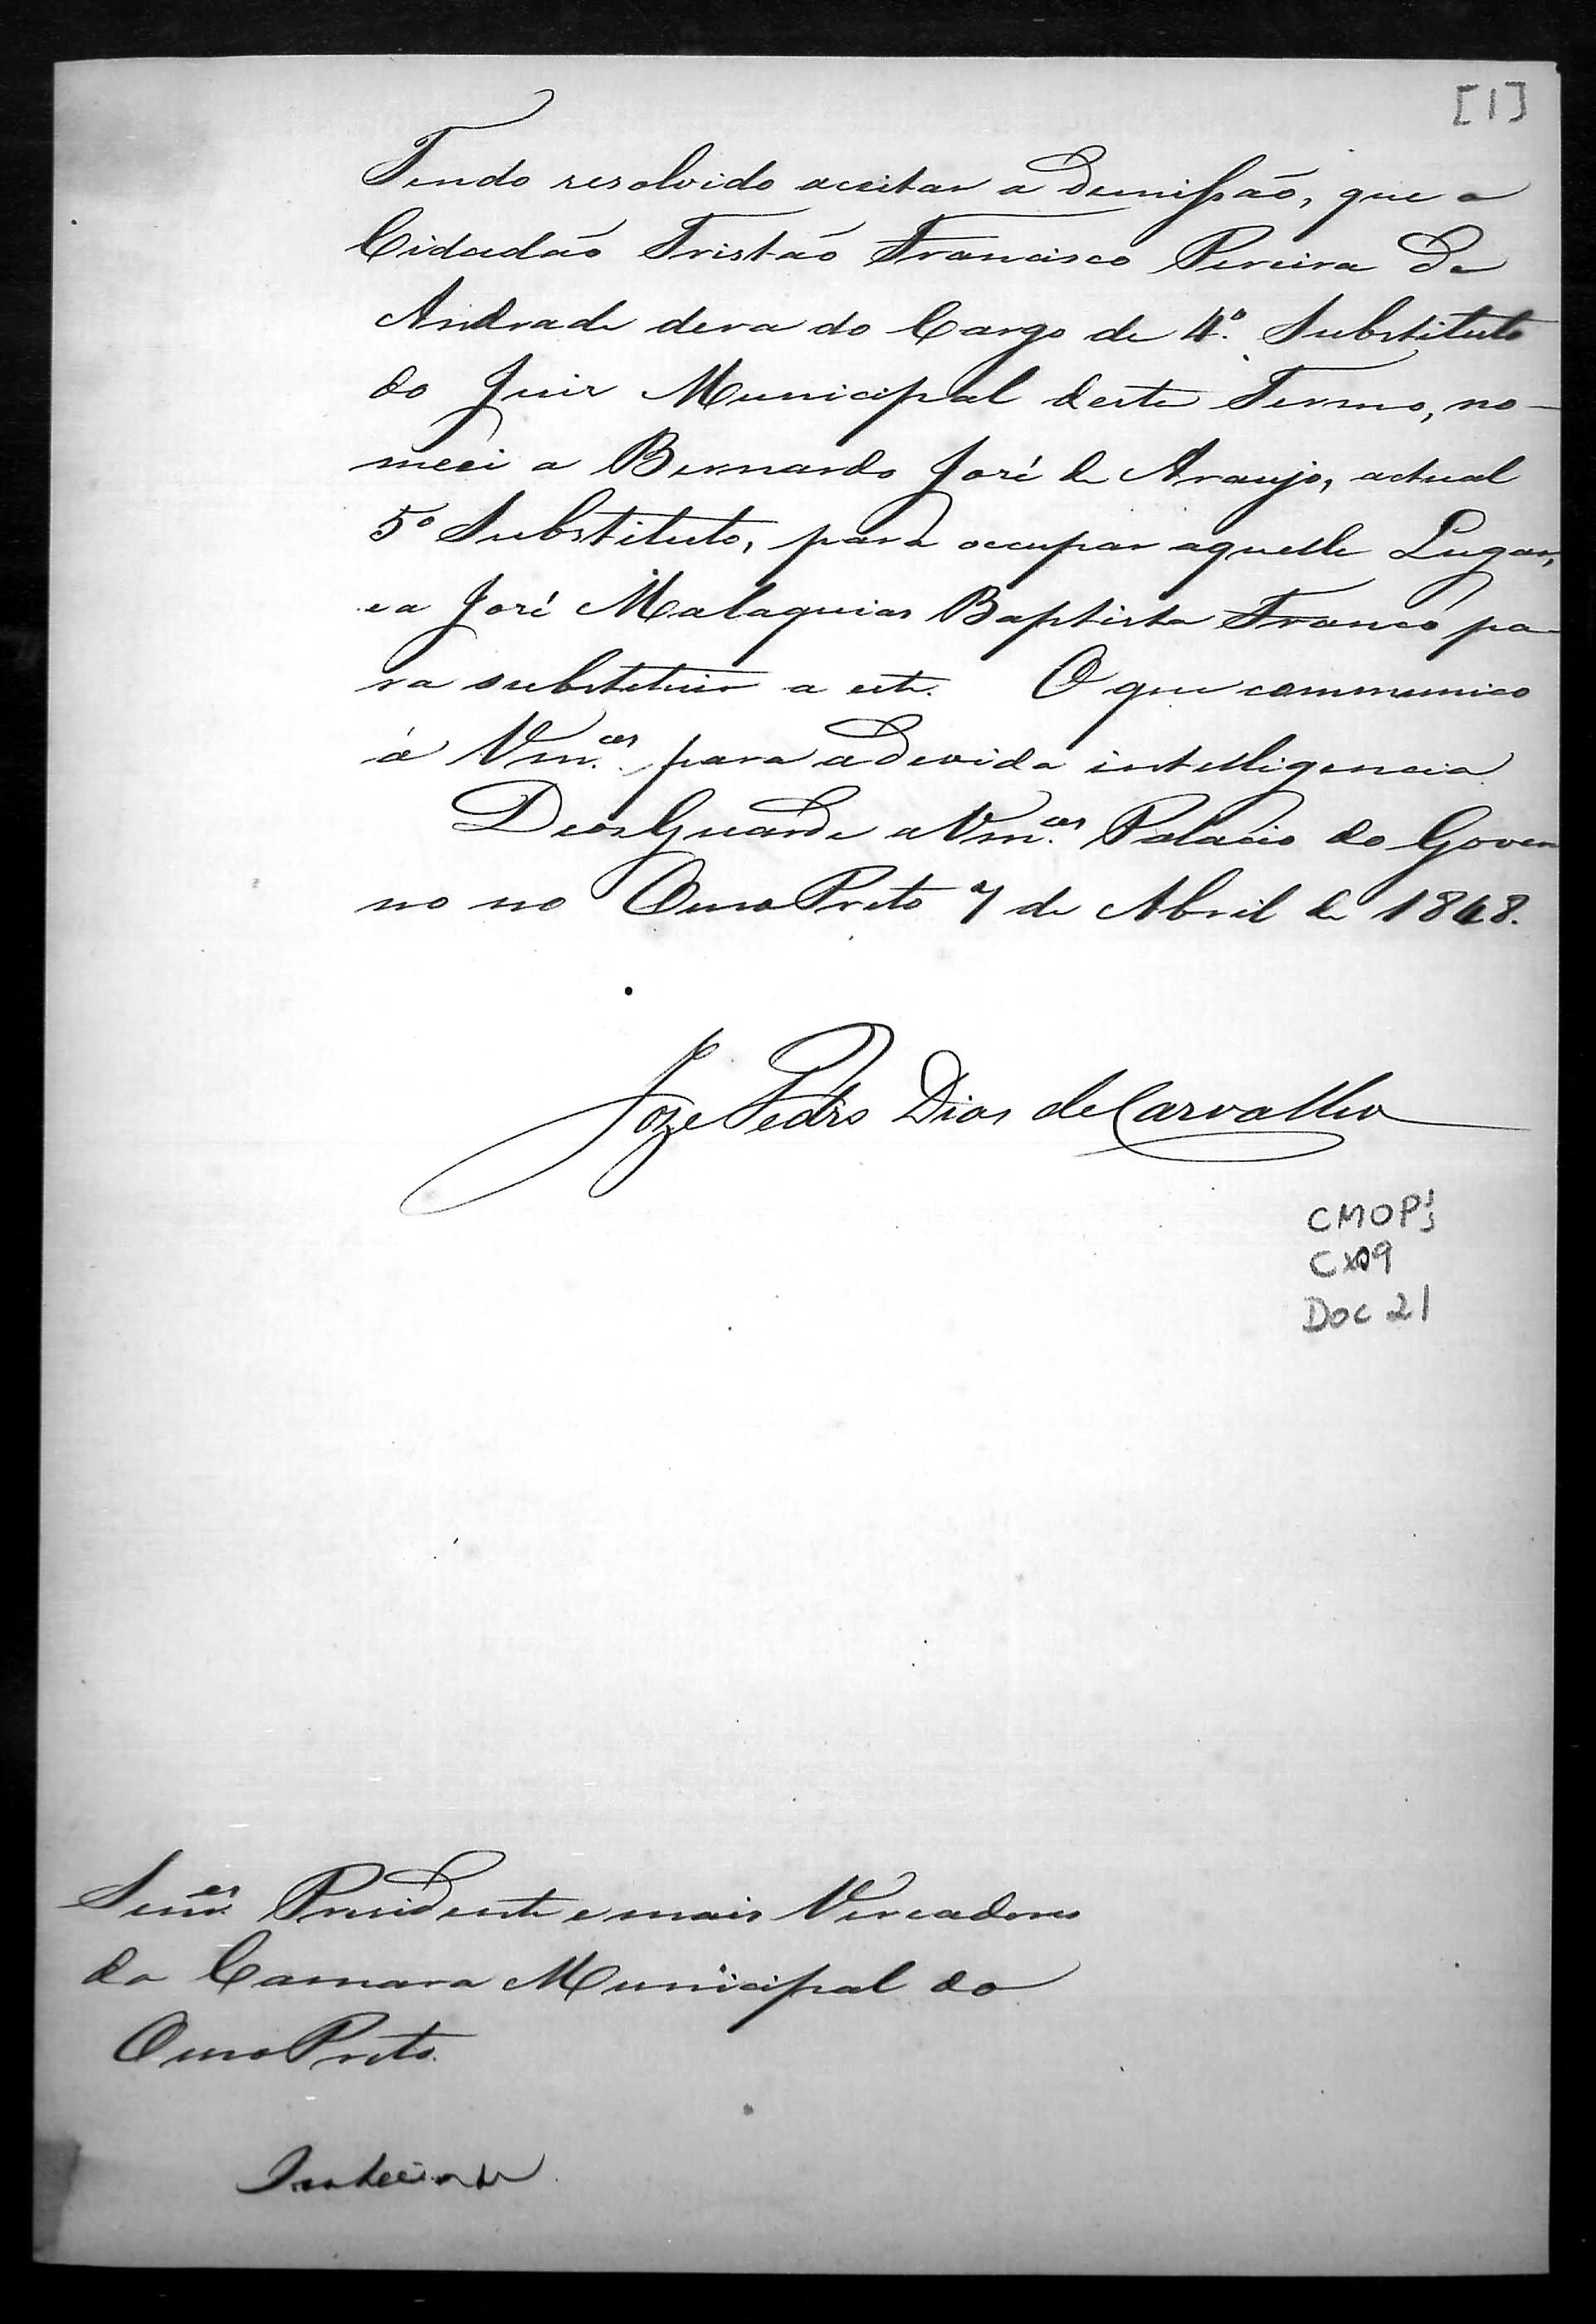 [1]
Tendo resolvido aceitar a demissão, que o
Cidadão Tristão Francisco Pereira de
Andrade dera do Cargo de 4º. Substituto
do Juiz Municipal deste Termo, no-
meei a Bernardo José de Araujo, actual
5º Substituto, para occupar aquelle Lugar,
e a José Malaquias Baptista Franco pa-
ra substituir a este. O que communico
á Vm.ces para a devida intelligencia
Deos Guarde a Vm.ces Palacio do Gover
no no Ouro Preto 7 de Abril de 1848.
Joze Pedro Dias de Carvalho
CMOP
Cx09
Doc 21
Senr.es Presidente e mais Vereadores
da Camara Municipal do
Ouro Preto.
Inteirada